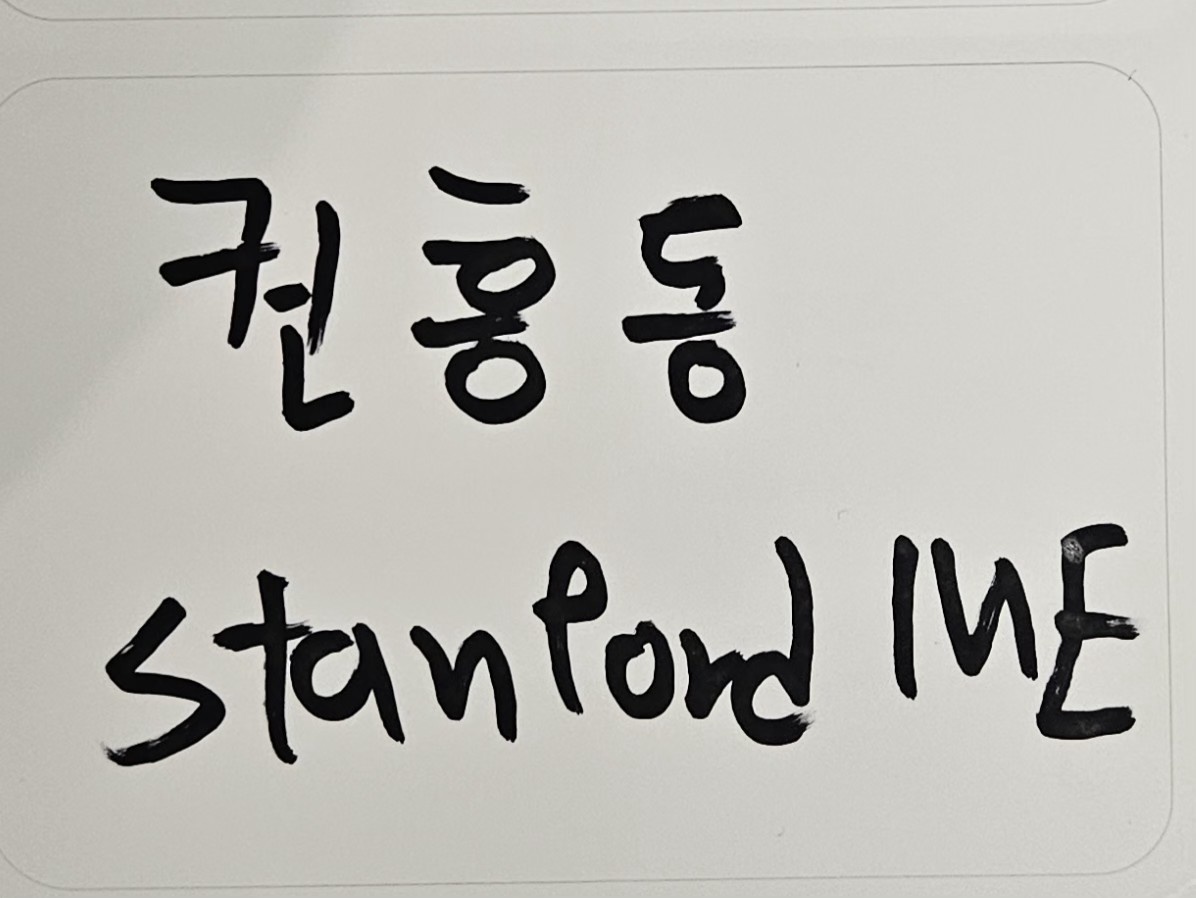 권홍동
Stanford ME